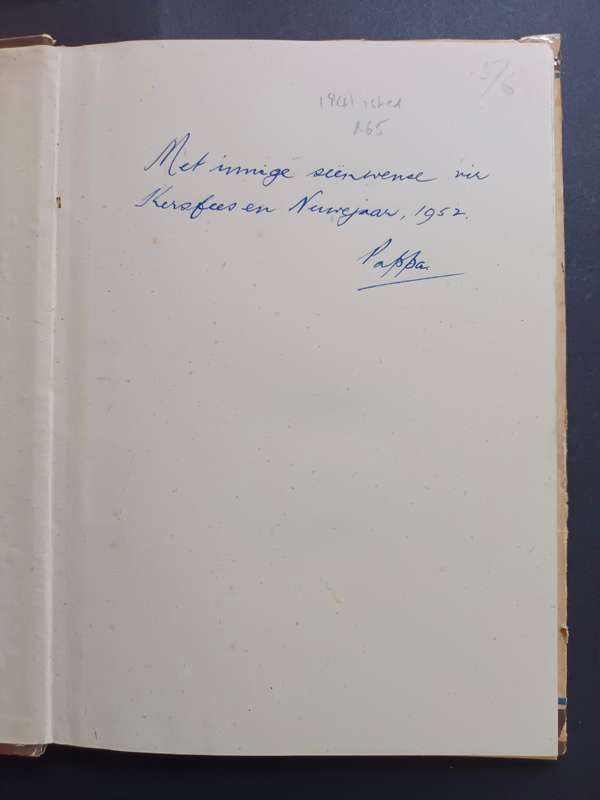 5/6
1941 1st ed
R65
Met innige seënwense vir
Kersfees en Nuwejaar, 1952.
Pappa.